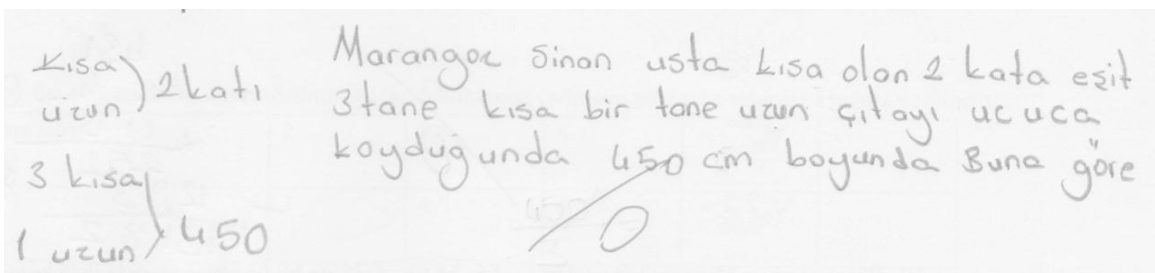 Kısa
uzun ) 2 katı
3 kısa
1 uzun ) 450
Marangoz Sinan usta kısa olan 2 kata eşit
3 tane kısa bir tane uzun çıtayı uc uca
koyduğunda 450 cm boyunda Buna göre
0